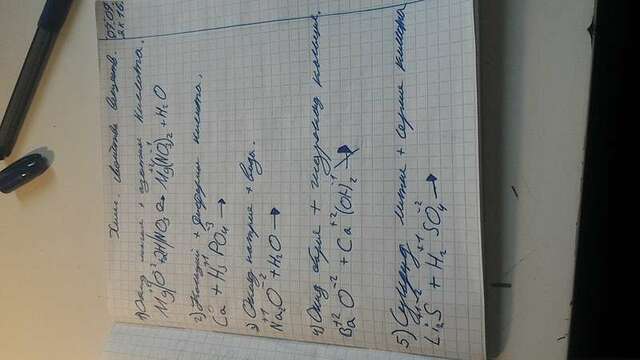 07.09
Хим. свойства веществ.
1) Оксид магния + азотная кислота.
MgO + 2HNO3 → Mg(NO3)2 + H2O
2) Кальций + фосфорная кислота.
Ca + H3PO4 →
3) Оксид натрия + вода.
Na2O + H2O →
4) Оксид бария + гидроксид кальция.
BaO + Ca(OH)2
5) Сульфид лития + серная кислота
Li2S + H2SO4 →